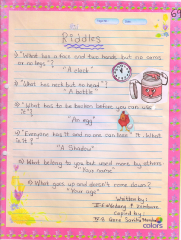 64
Riddles
1) "What has a face and two hands but no arms
or no legs"?
"A clock"
"What has neck but no head"?
"A bottle"
"What has to be broken before you can use
it"?
"An egg"
"Everyone has it and no one can lose it. What
is it?
"A Shadow"
What belong to you but used more by others
"Your name"
What goes up and doesn't come down?
"Your age"
Written by:
Copied by:
colors